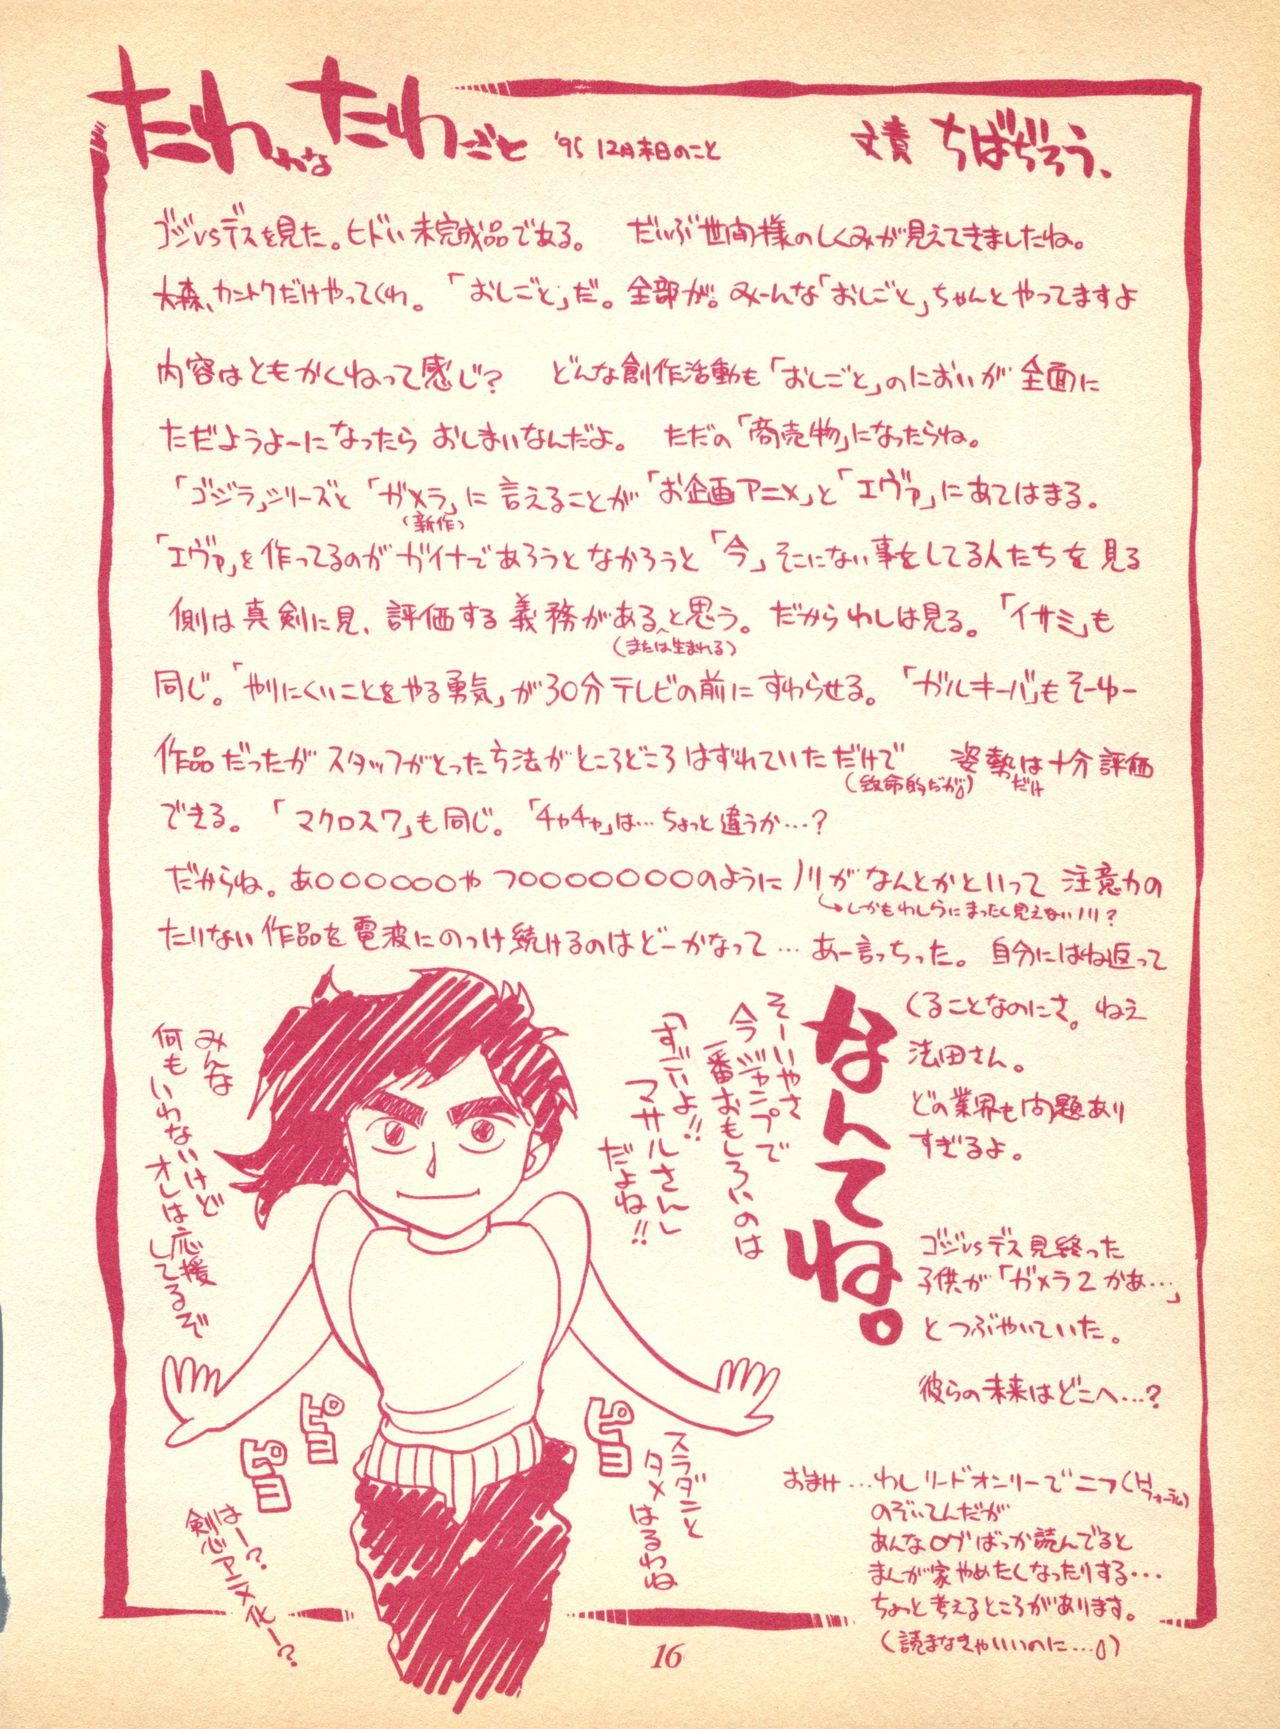 たわわなたわごと '95 12月末日のこと
文責 ちばぢろう、
ゴジvsデスを見た。ヒドい未完成品である。 だいぶ世間様のしくみが見えてきましたね。
大森、カントクだけやってくれ。「おしごと」だ。全部が。みーんな「おしごと」ちゃんとやってますよ
内容はともかくねって感じ? どんな創作活動も「おしごと」のにおいが全面に
ただようよーになったらおしまいなんだよ。 ただの「商売物」になったらね。
「ゴジラ」シリーズと「ガメラ」に言えることが「お企画アニメ」と「エヴァ」にあてはまる。
(新作)
「エヴァ」を作ってるのがガイナであろうとなかろうと「今」そこにない事をしてる人たちを見る
側は真剣に見、評価する義務があると思う。だからわしは見る。「イサミ」も
(または生まれる)
同じ。「やりにくいことをやる勇気」が30分テレビの前にすわらせる。「ガルキーバ」もそーゆー
作品だったがスタッフがとった方法がところどころはずれていただけで 姿勢は十分評価
(致命的だが)
だけ
できる。「マクロス7」も同じ。「チャチャ」は…ちょっと違うか…?
だからね。あ○○○○○○やつ○○○○○○○のようにノリがなんとかといって注意力の
→しかもわしらにまったく見えないノリ?
たりない作品を電波にのっけ続けるのはどーかなって…あー言っちった。自分にはね返って
くることなのにさ。ねえ
法田さん。
どの業界も問題あり
すぎるよ。
なんてね。
そーいやさ
今ジャンプで
一番おもしろいのは
「すごいよ!!
マサルさん」
だよね!!
みんな
何もいわないけど
オレは応援
してるぞ
ゴジvsデス見終った
子供が「ガメラ2かあ…」
とつぶやいていた。
彼らの未来はどこへ…?
ピヨ
ピヨ
ピヨ
スラダンと
タメはるわね
はー?
剣心アニメ化ー?
おまけ…わしリードオンリーでニフ(フォーラム)
のぞいてんだが
あんなログばっか読んでると
まんが家やめたくなったりする…
ちょっと考えるところがあります。
(読まなきゃいいのに…)
16